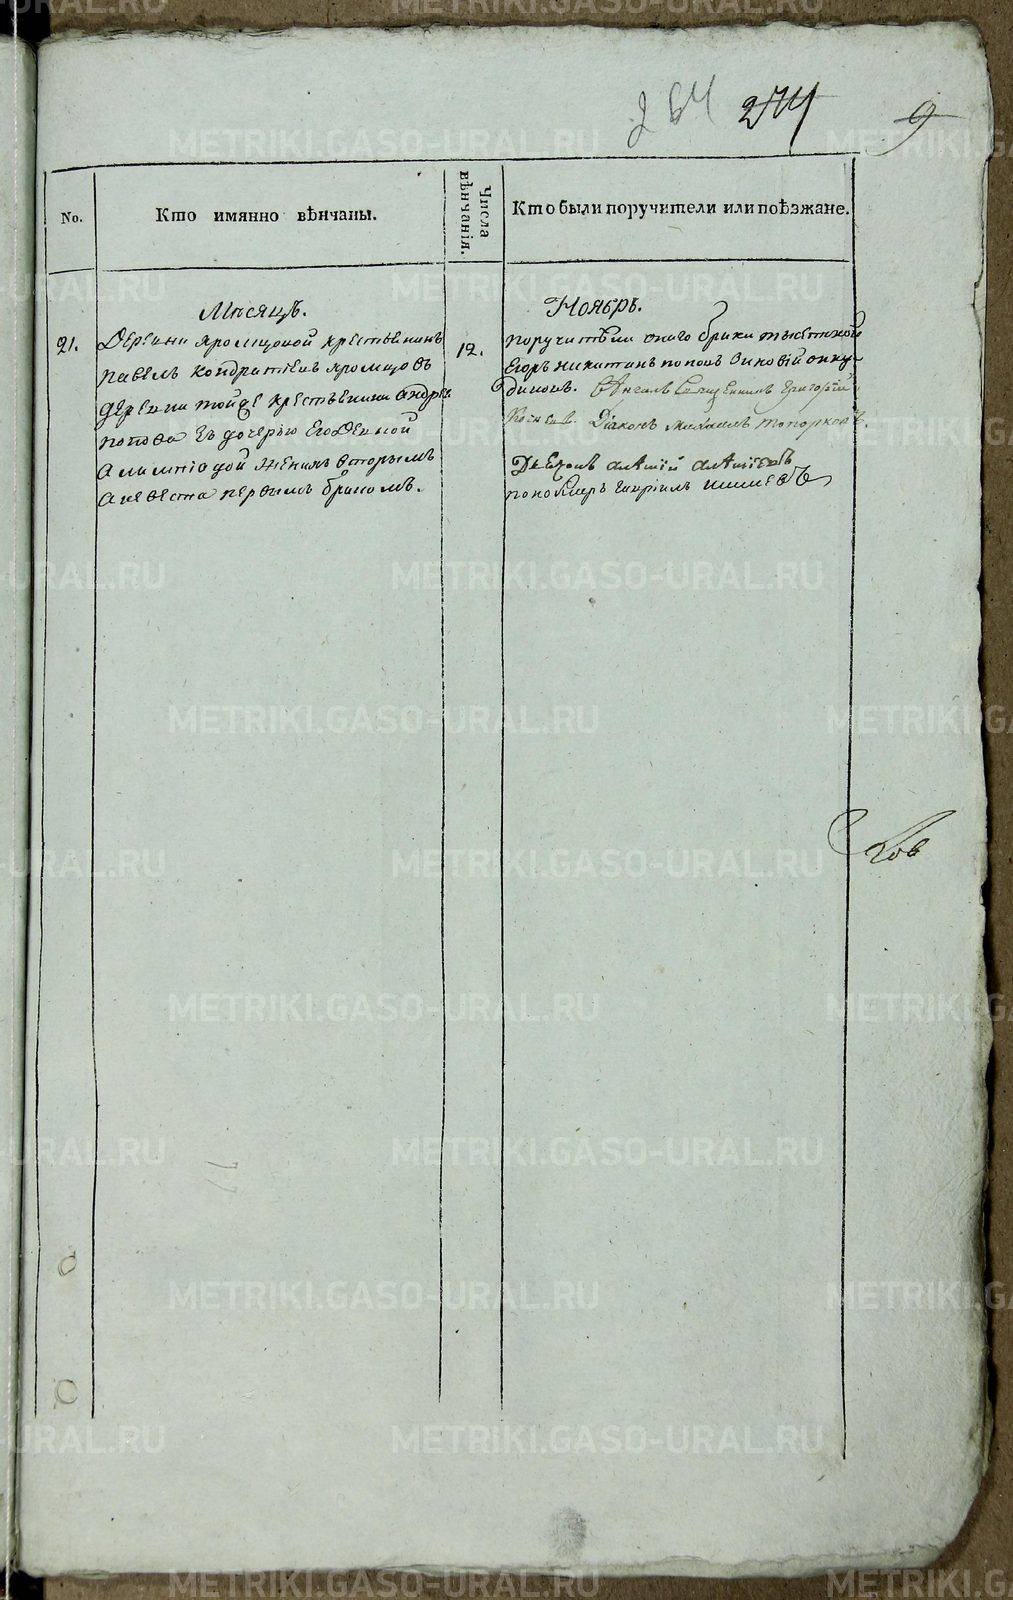 264 274 9
No.
Кто имянно вѣнчаны.
Числа вѣнчанія.
Кто были поручители или поѣзжане.
Мѣсяцъ.
Ноябрь.
21.
Деревни яромцовой крестьянинъ
Павелъ кондратьевъ яромцовъ
деревни тойже крестьянина андрея
попова съ дочерью его девкой
женихъ вторымъ
а невеста первымъ бракомъ.
12.
поручители онаго брака
Егоръ никитинъ поповъ Зиновій анку-
диновъ. Священникъ Григорій
Діаконъ михаилъ топорковъ.
Дьячокъ
пономарь гавріилъ
METRIKI.GASO-URAL.RU